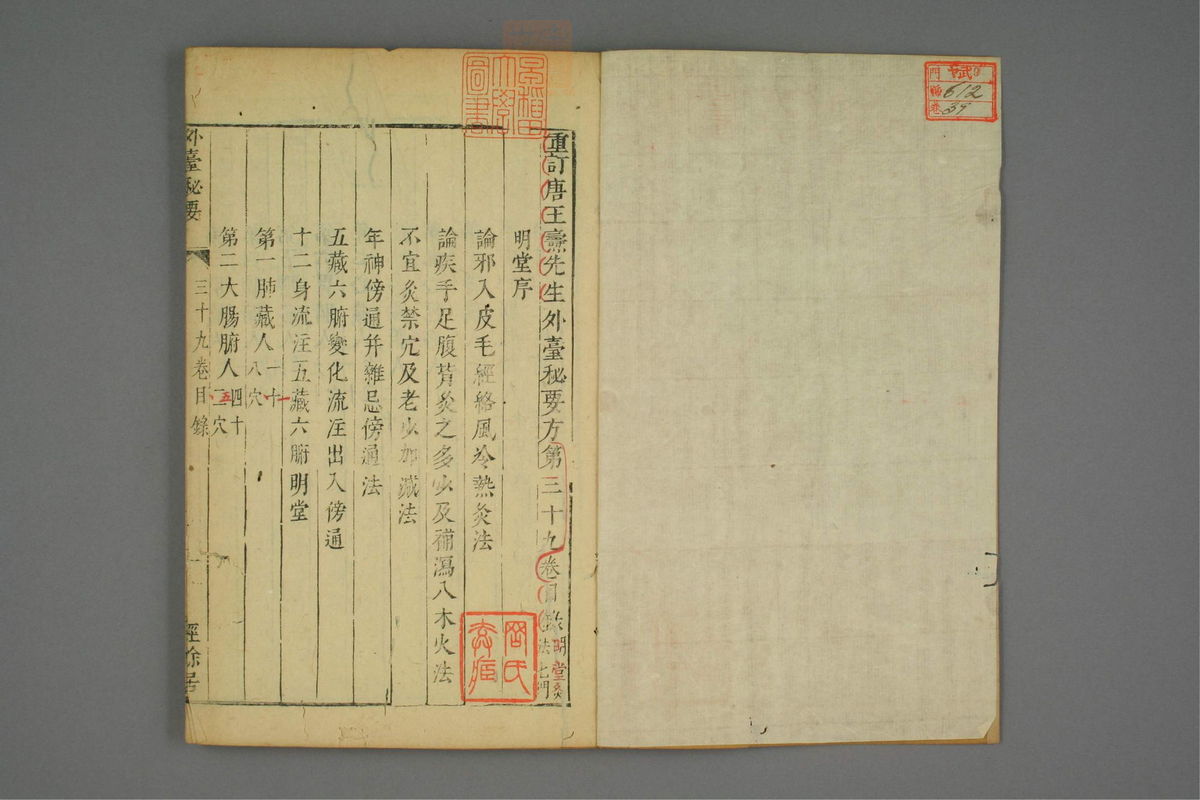 門
612
39
早稲田
大學
圖書
重訂唐王燾先生外臺秘要方第三十九卷目錄明堂灸法七門
明堂序
論邪入皮毛經絡風冷熱灸法
論疾手足腹背灸之多少及補瀉八木火法
不宜灸禁穴及老少加減法
年神傍通并雜忌傍通法
五藏六腑變化流注出入傍通
十二身流注五藏六腑明堂
第一肺藏人一十八穴
第二大腸腑人四十二穴
五
外臺秘要
三十九卷目錄
一
經餘居